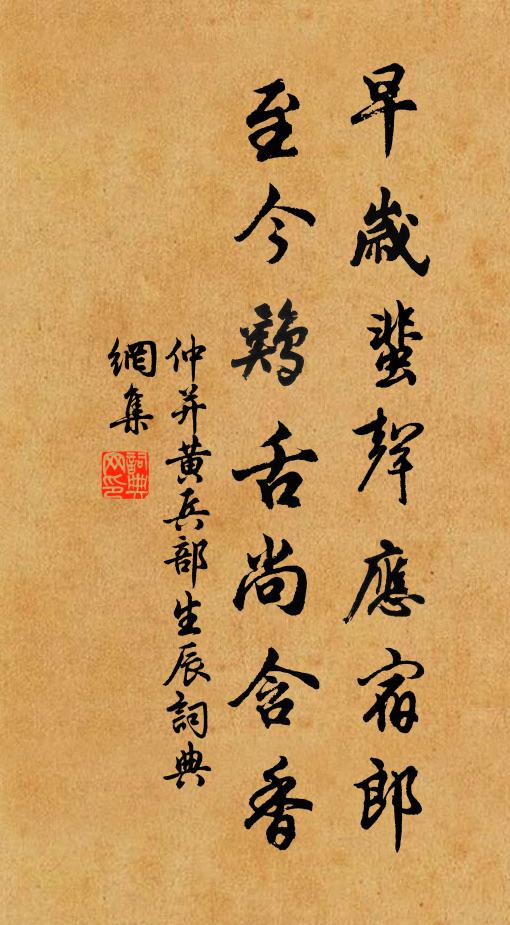 早歲蜚聲應宿郎
至今鷄舌尚含香
仲并黃兵部生辰詞典
網集
詞典網印